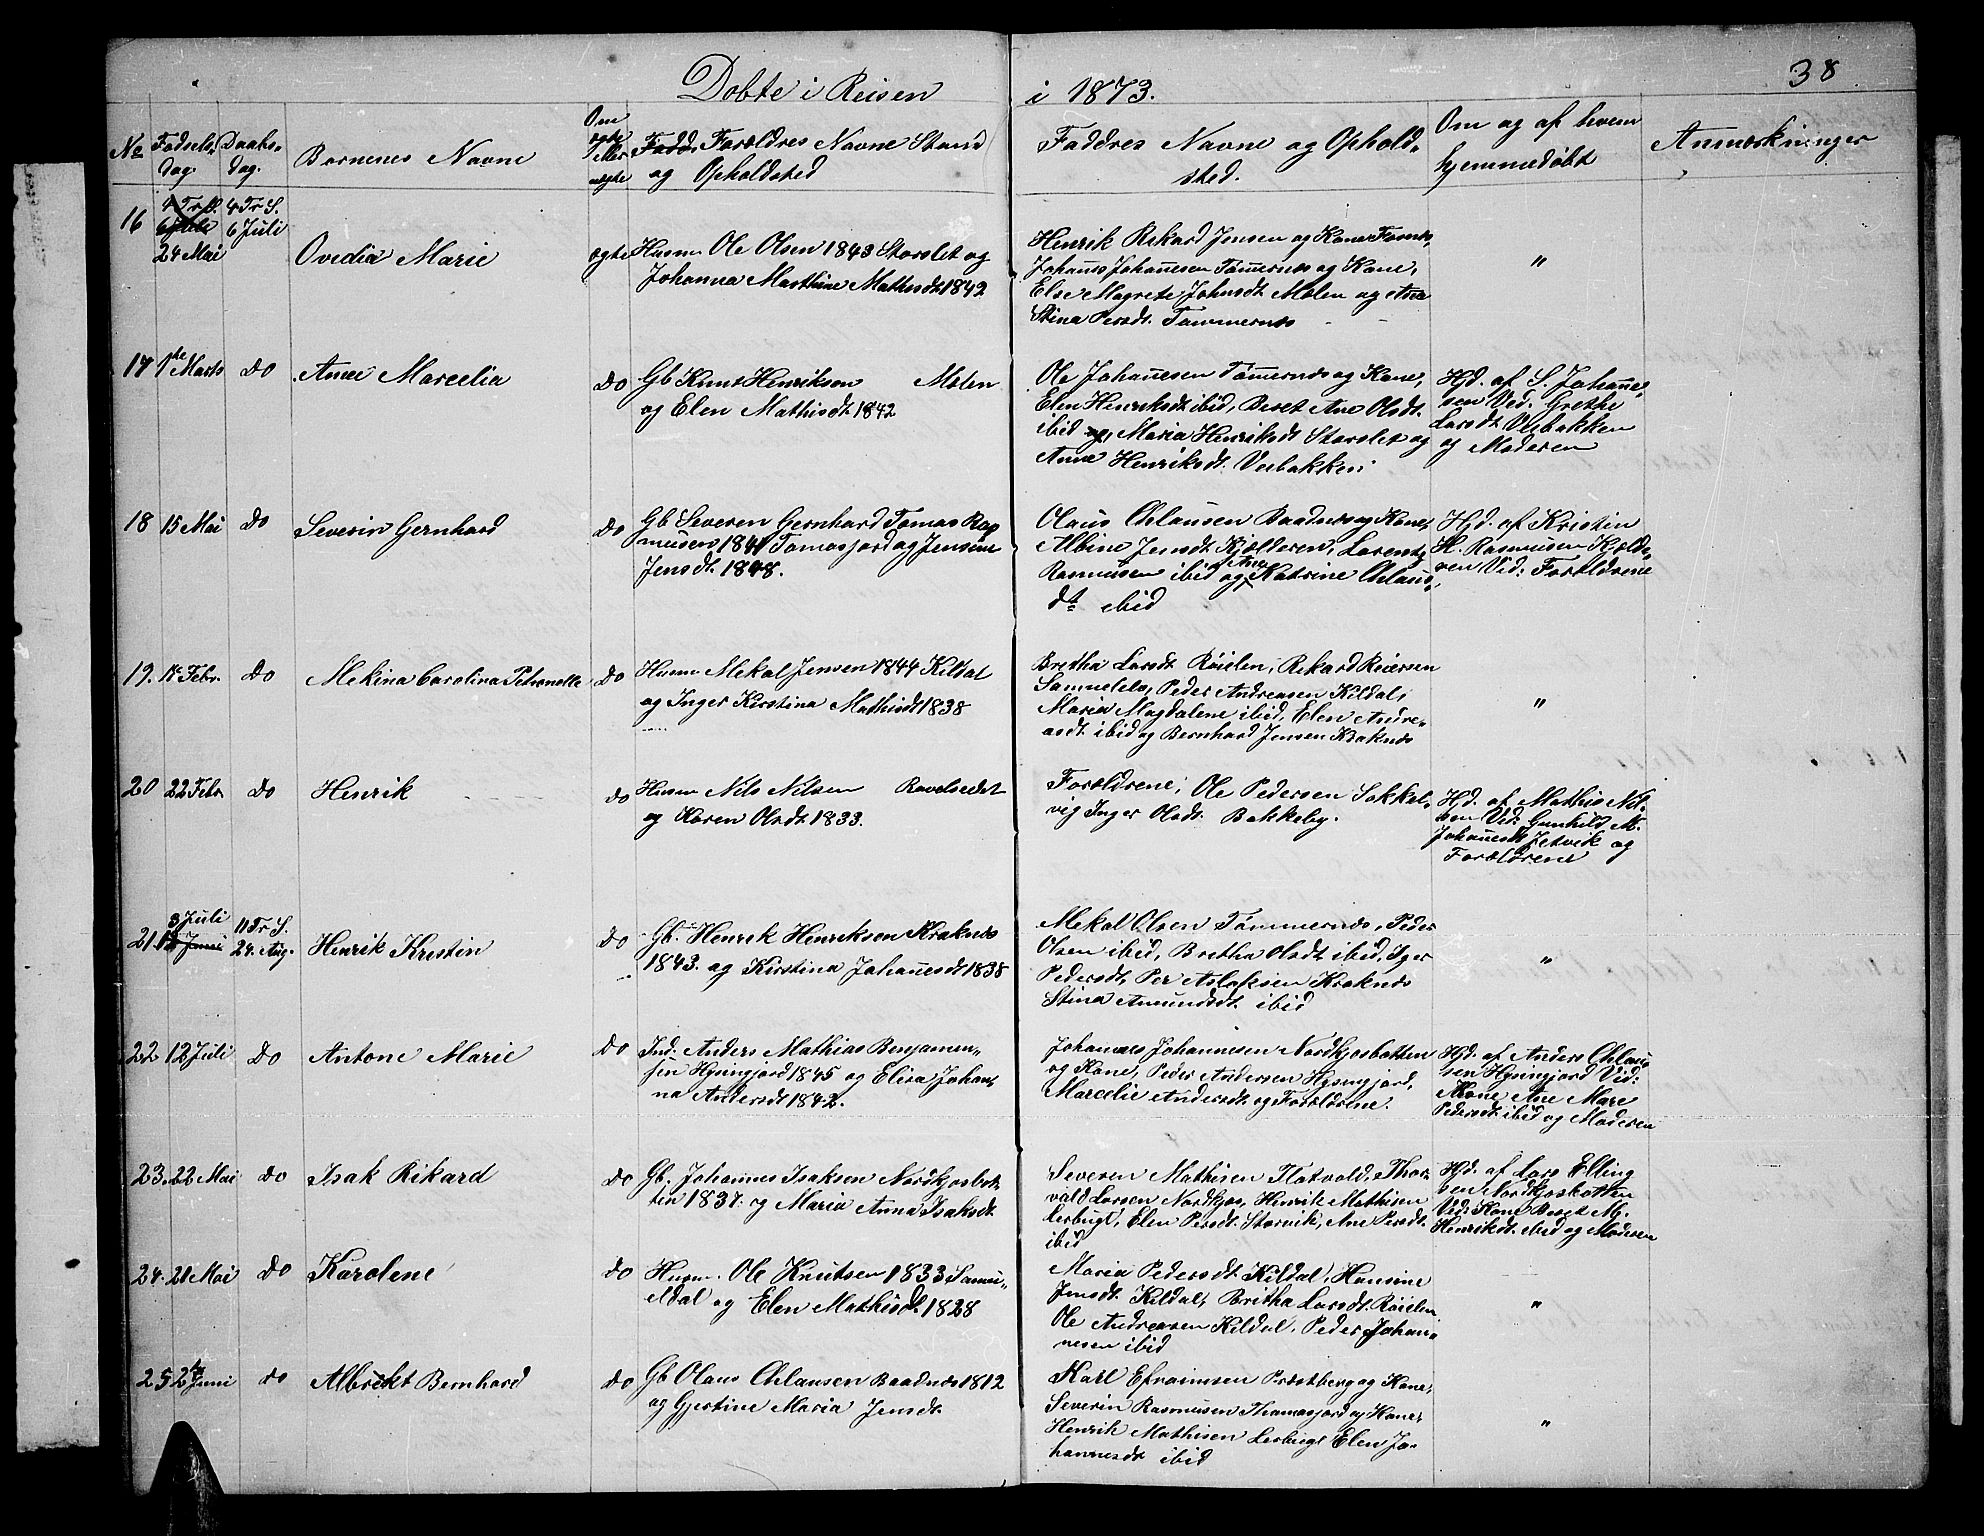 38
Døbte i Reisen i 1873.
No Fødsels Dag. Daabs Dag. Børnenes Navne Om ægte eller uægte Forældres Navne Stand og Opholdsted
Faddres Navne og Ophold-
sted.
Om og af hvem
hjemmedøbt
Anmærkninger
16 24 Mai 4 Tr S. 6 Juli Ovedia Marie ægte Husm Ole Olsen 1843 Storslet og
Johanna Marthine Mathisdt. 1842
Henrik Rikard Jensen og Kone
Johañs Johañesen Tømernæs og Kone,
Else Magrete Johnsdt. Molen og Ane
Stina Persdt. Tømmernæs
"
17 1te Marts do Anne Marcelia do Gb Knut Henriksen Molen
og Elen Mathisdt. 1842
Ole Johañesen Tømernæs og Kone,
Elen Henriksdt ibid, Beret Ane Olsdt.
ibid og, Maria Henriksdt Storslet og
Anne Henriksdt. Veibakken
Hjd. af S. Johañe-
sen Ved. Grethe
Larsdt. Veibakken
og Moderen
18 15 Mai do Severin Gernhard do Gb Severen Gernhard Tomas Ras
musen 1841 Tomasjord og Jensine
Jensdt. 1848.
Olaus Chlausen Baadnæs og Kone,
Albine Jensdt. Kjelderen, Lorents
Rasmusen ibid og Ane Katrine Chlaus-
dt. ibid
Hjd. af Kristin
H. Rasmusen Kjelde-
ren Vid: Forældrene
19. Febr. do Mekina Carolina Petronelle do Husm Mekal Jensen 1844 Kildal
og Inger Kirstina Mathisdt 1838
Bretha Larsdt. Røielen, Rikard Reiersen
Samuelelv, Peder Andreasen Kildal,
Maria Magdalene ibid, Elen Andre-
asdt. ibid og Bernhard Jensen Kraknæs
"
20 22 Febr do Henrik do Husm Nils Nilsen Ravelseidet
og Karen Olsdt. 1833.
Forældrene, Ole Pedersen Sokkel-
vig Inger Olsdt. Bakkeby.
Hjd. af Mathis Nil-
sen Vid: Gunhild M.
Johañesdt Jetvik og
Forældrene
21 3 Juli 11 Tr S. 24. Aug. Henrik Kristin do Gb. Henrek Henriksen Kraknes
1843. og Kirstina Johañesdt 1838
Mekal Olsen Tømmernæs, Peder
Olsen ibid, Bretha Olsdt ibid, Iger
Pedersdt, Per Aslaksen Kraknæs
Stina Amundsdt. ibid
"
22 12 Juli do Antone Marie do Ind: Anders Mathias Benjamen-
sen Hysingjord 1845 og Elisa Johan-
na Andersdt 1842.
Johannes Johannesen Nordkjosbotten
og Kone, Peder Andersen Hysingjord,
Marcelie Andersdt. og Forældrene.
Hjd. af Anders Chlau-
sen Hysingjord Vid:
Kone Ane Mare
Pedersdt. ibid og Moderen
23. 22 Mai do Isak Rikard do Gb. Johannes Isaksen Nordkjosbot-
ten 1837. og Maria Anna Isaksdt.
Severen Mathisen Flatvold, Thor-
vald Larsen Nordkjos, Henrik Mathisen
Lerbugt, Elen Persdt. Storvik, Ane Persdt.
ibid
Hjd. af Lars Elling
sen Nordkjosbotten
Vid: Kone Beret M.
Henriksdt. ibid og Moderen
24. 21 Mai do Karolene do Husm. Ole Knutsen 1833 Samu-
eldal og Elen Mathisdt. 1828
Maria Pedersdt. Kildal, Hansine
Jensdt. Kildal, Britha Larsdt. Røielen
Ole Andreasen Kildal, Peder Johan-
nesen ibid
"
25 2 Juni do Albrekt Bernhard do Gb Olaus Chlausen Baadnæs 1812
og Gjertine Maria Jensdt.
Karl Efraimsen Præstberg og Kone,
Severin Rasmusen Thomasjord og Kone,
Henrik Mathisen Lerbugt Elen Jo-
hannesdt ibid
"